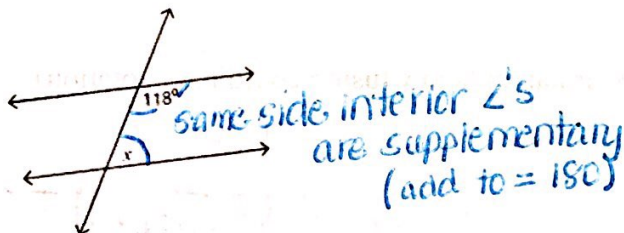 118°
same-side interior ∠'s
x
are supplementary
(add to = 180)